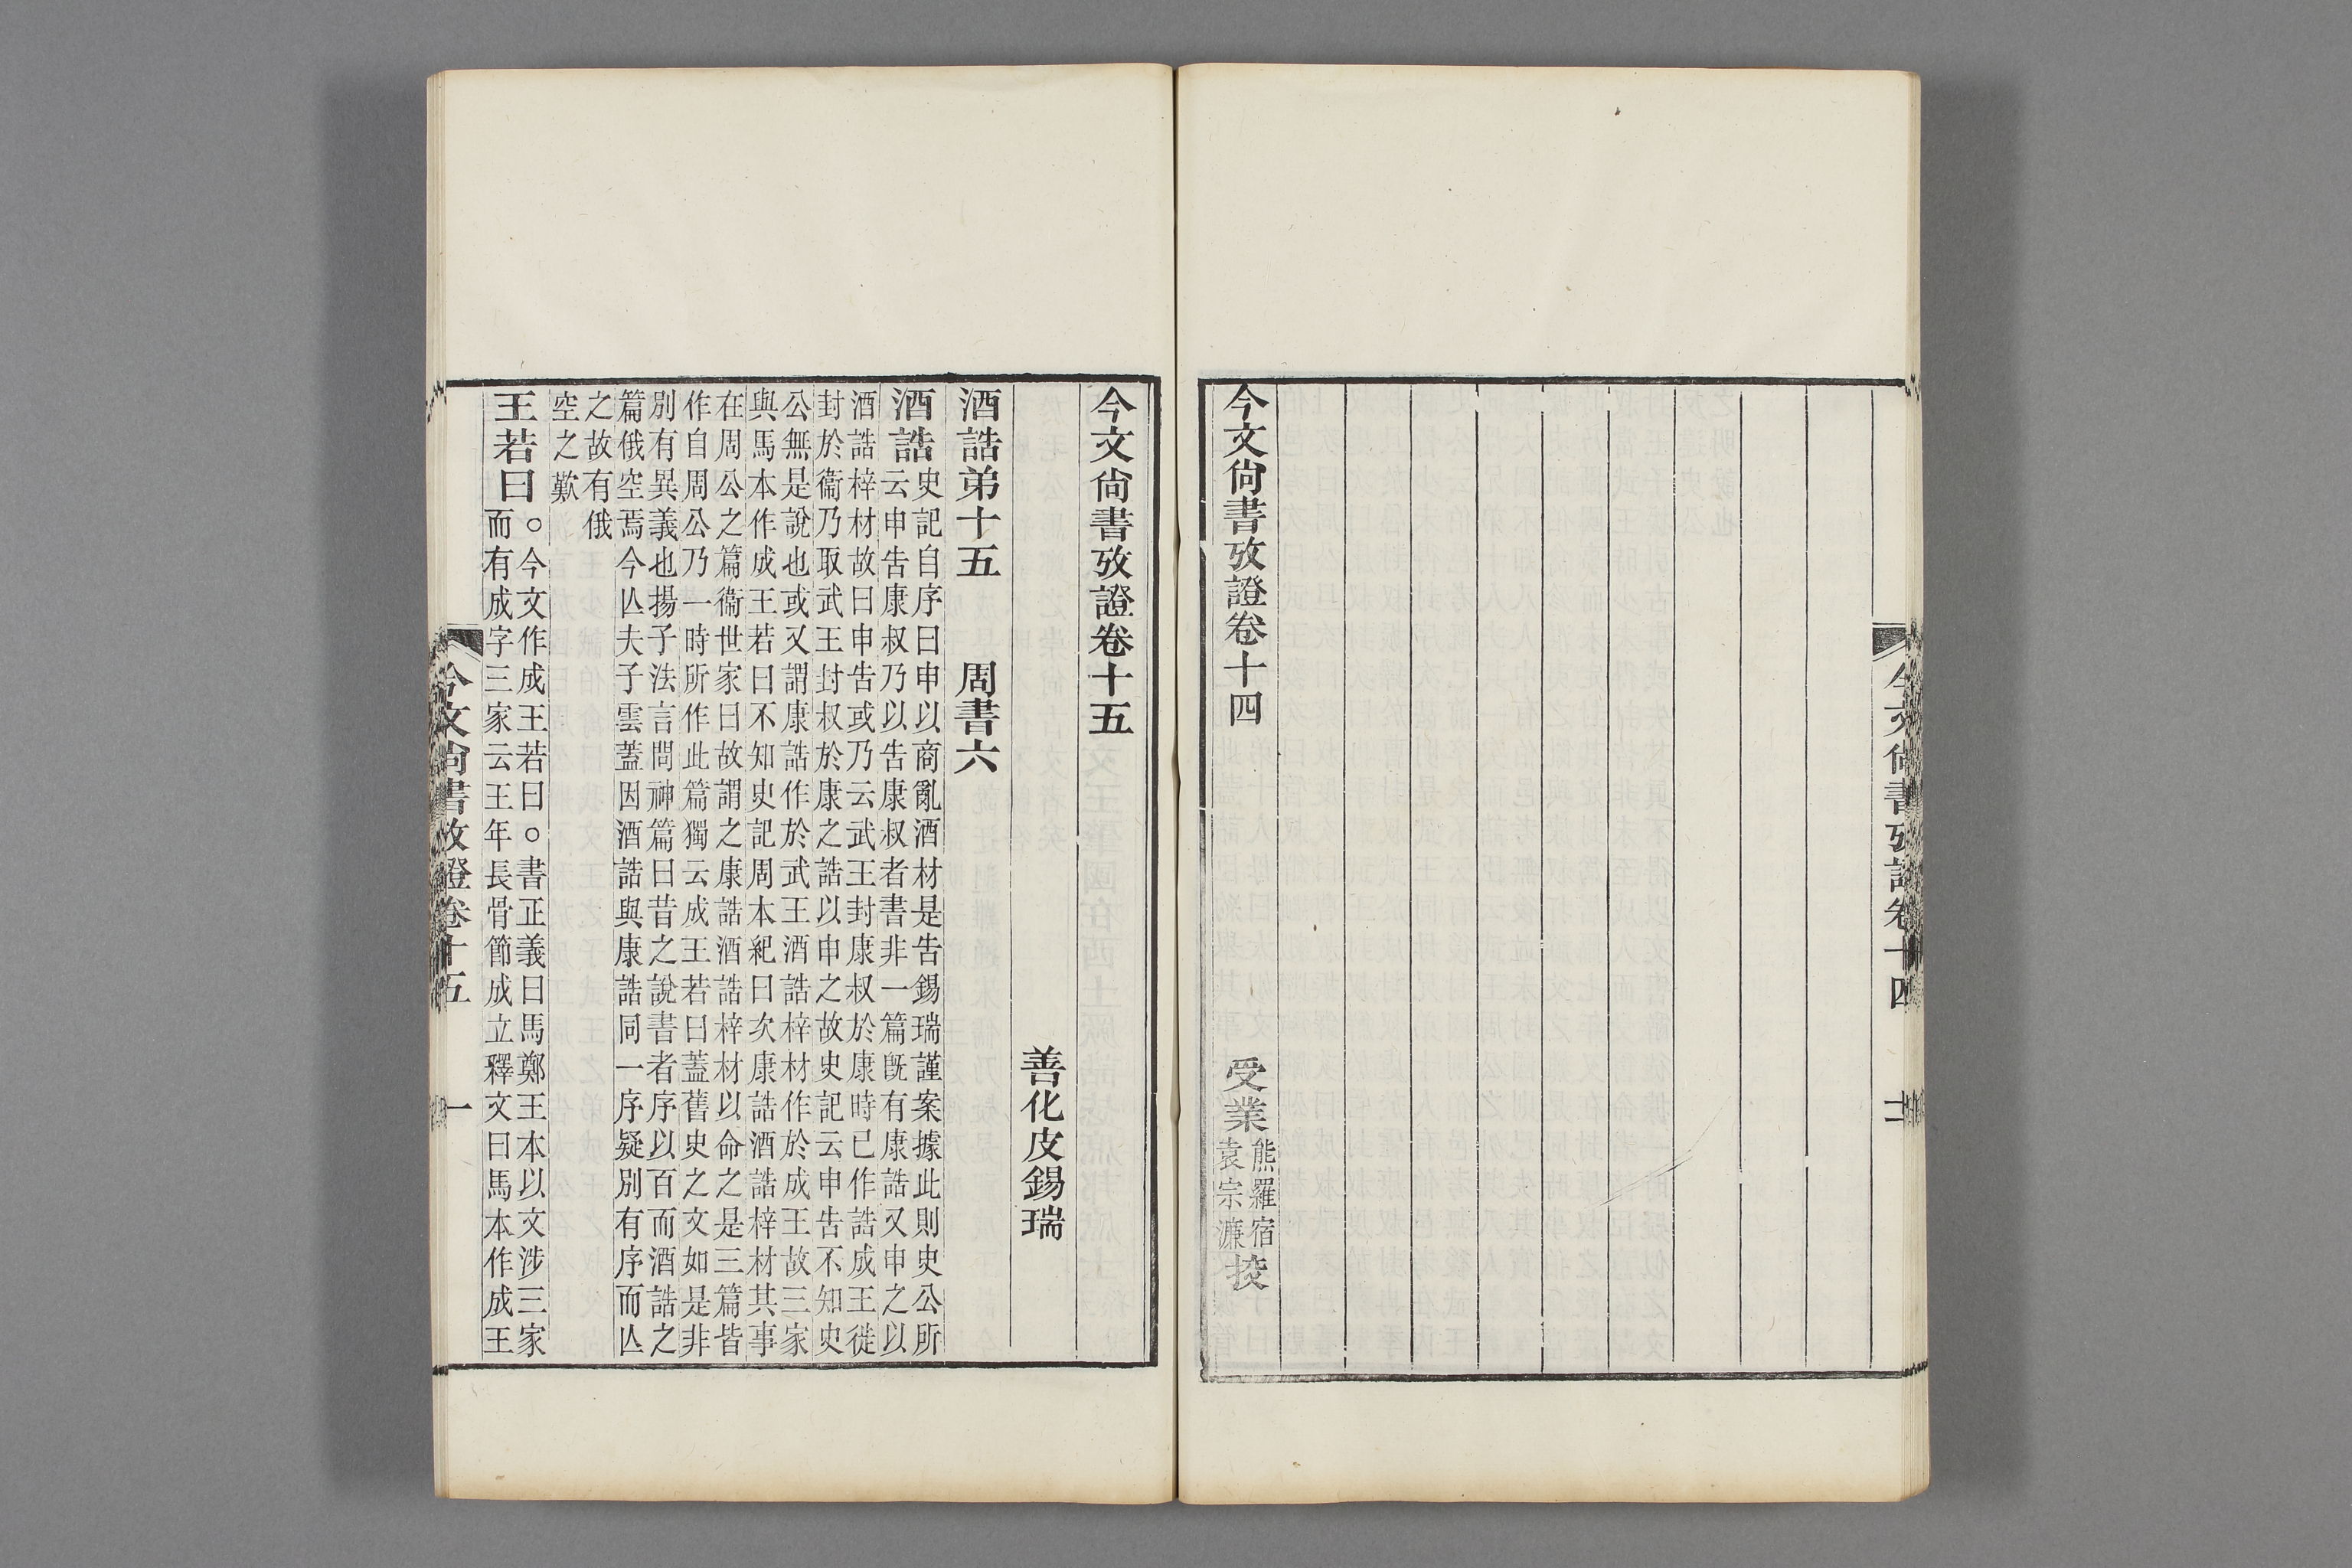 今文尙書攷證卷十四
十一
今文尙書攷證卷十四　受業熊羅宿袁宗濂挍
今文尙書攷證卷十五
善化皮錫瑞
酒誥弟十五　周書六
酒誥
史記自序曰申以商亂酒材是告錫瑞謹案據此則史公所
云申告康叔乃以告康叔者書非一篇旣有康誥又申之以
酒誥梓材故曰申告或乃云武王封康叔於康時已作誥成王徙
封於衞乃取武王封叔於康之誥以申之故史記云申告不知史
公無是說也或又謂康誥作於武王酒誥梓材作於成王故三家
與馬本作成王若曰不知史記周本紀曰次康誥酒誥梓材其事
在周公之篇衞世家曰故謂之康誥酒誥梓材以命之是三篇皆
作自周公乃一時所作此篇獨云成王若曰蓋舊史之文如是非
別有異義也揚子法言問神篇曰昔之說書者序以百而酒誥之
篇俄空焉今亾夫子雲蓋因酒誥與康誥同一序疑別有序而亾
之故有俄
空之歎
王若曰
○今文作成王若曰○書正義曰馬鄭王本以文涉三家
而有成字三家云王年長骨節成立釋文曰馬本作成王
今文尙書攷證卷十五
一